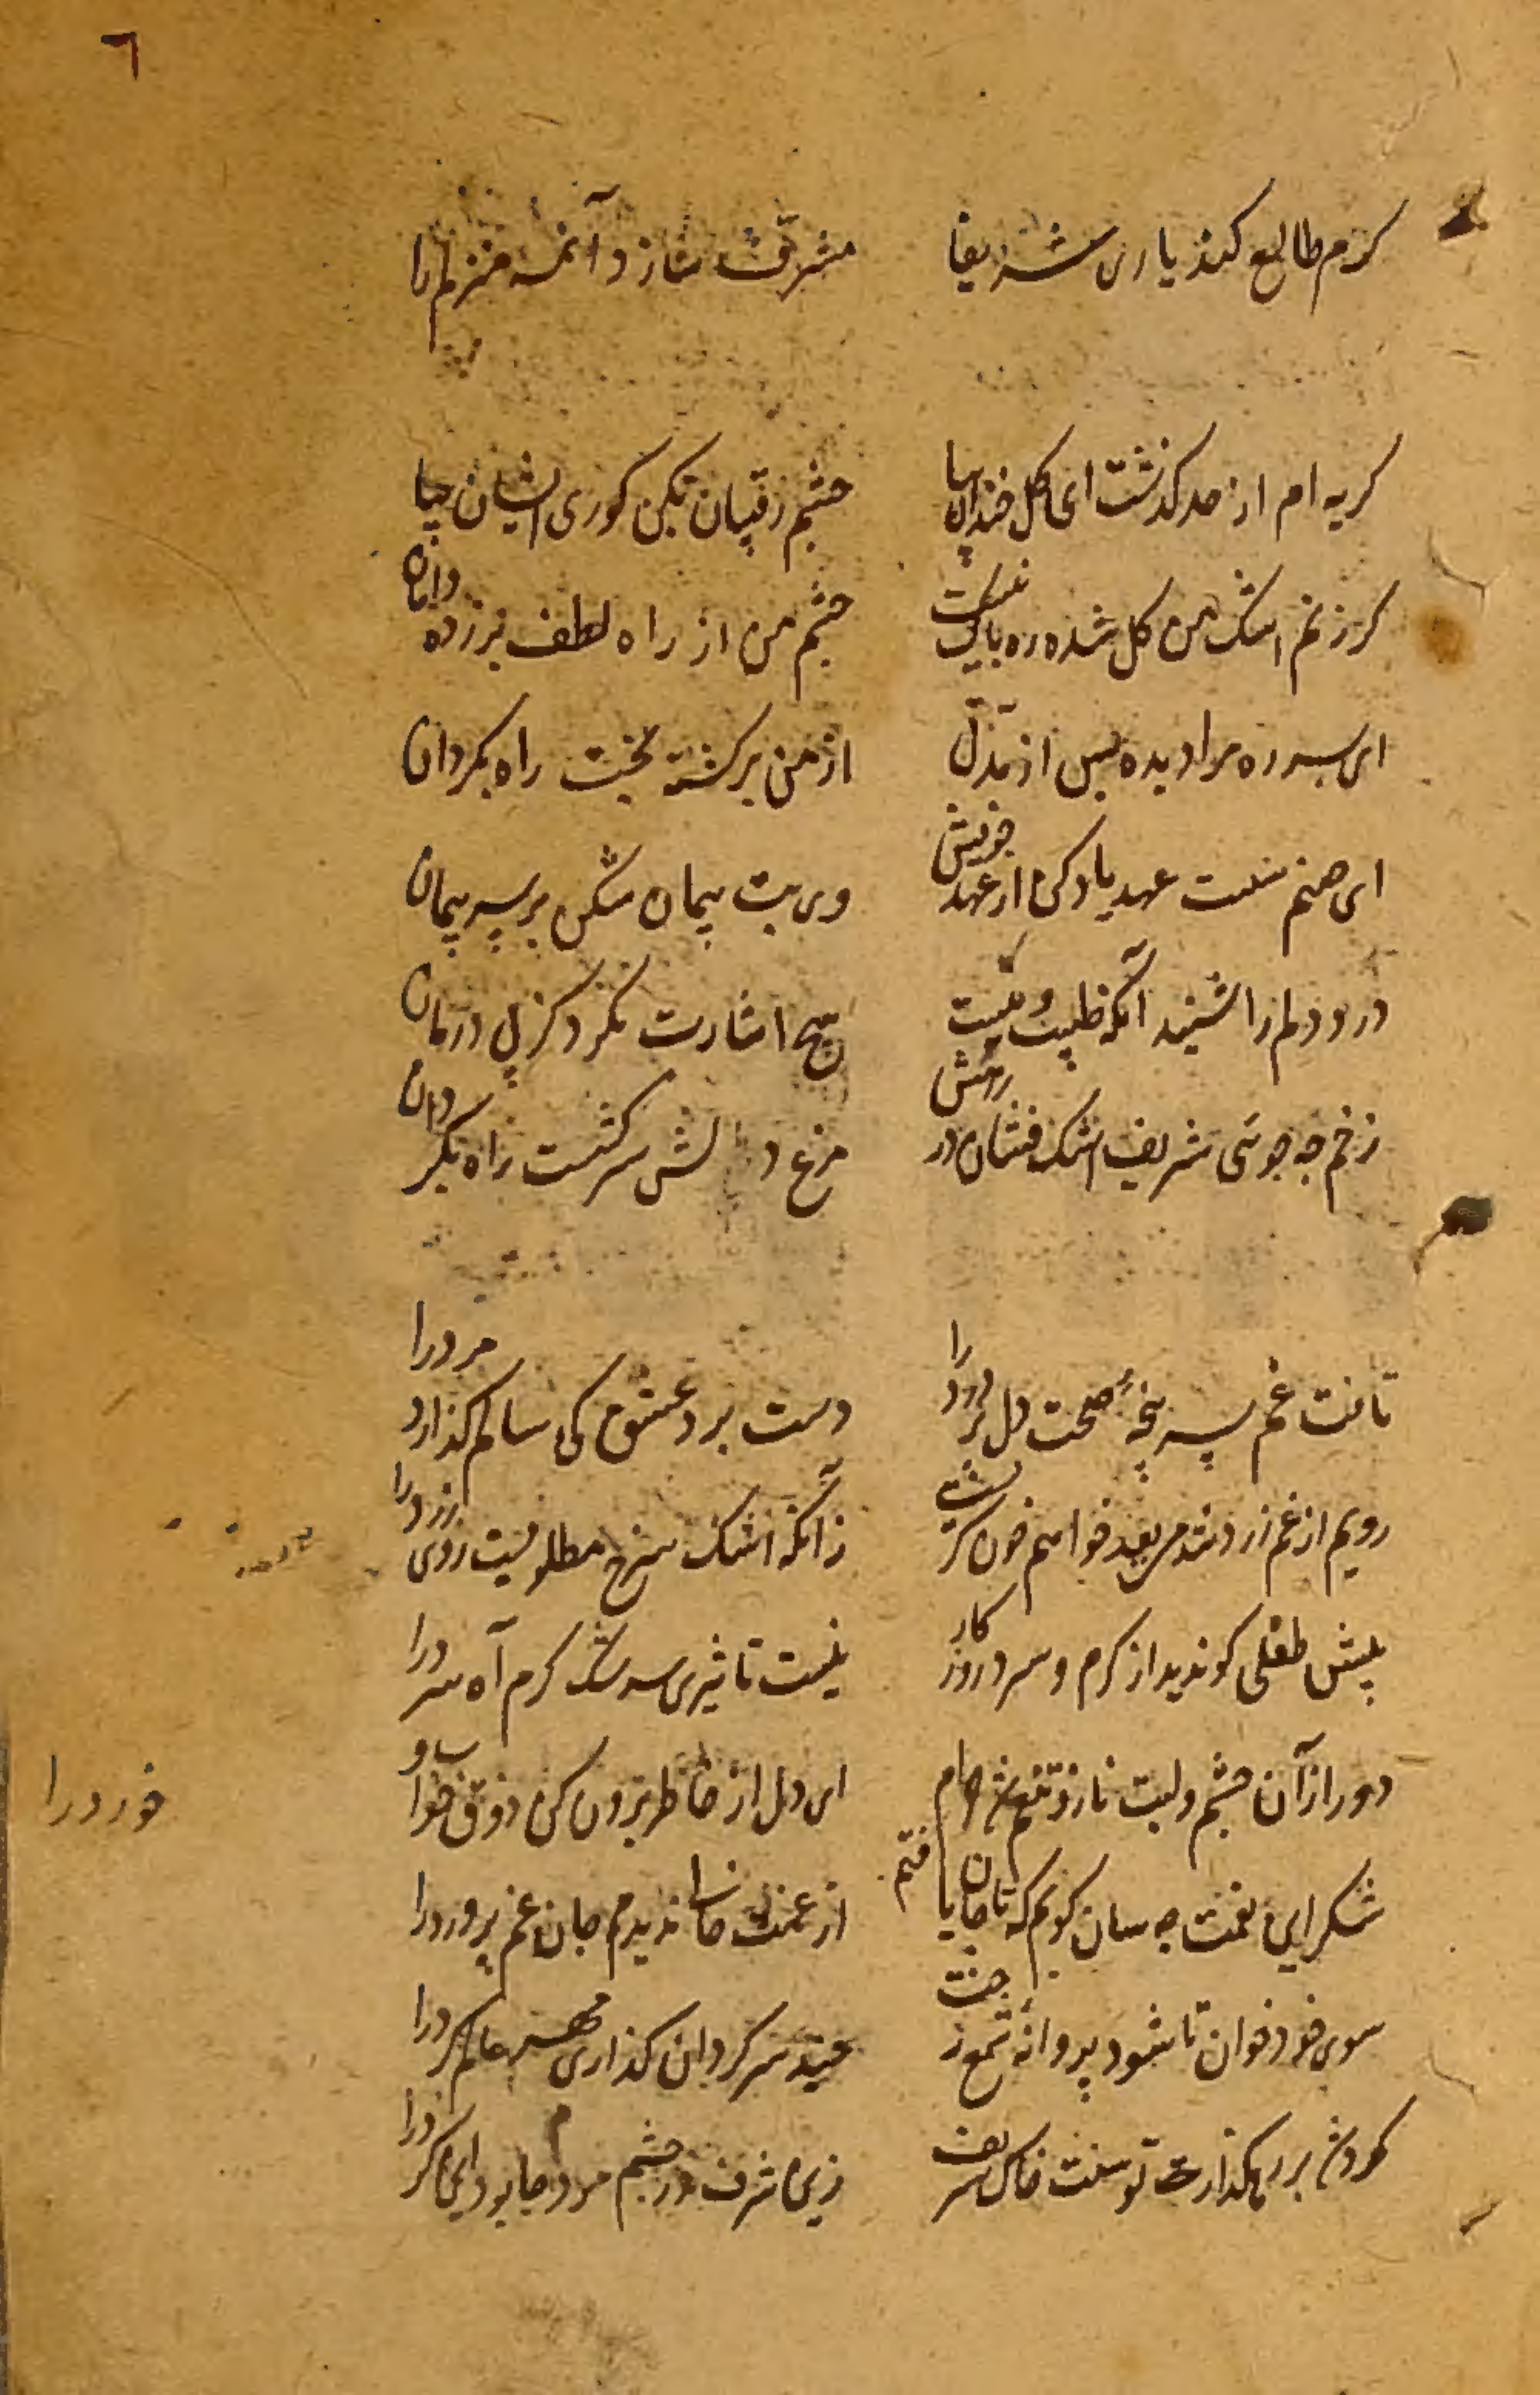 ٦
کرم طالع کند یاری شریفا مشرف سازد آنمه منزلم را
کریه ام از حد کذشت ای کل خندان بیا چشم رقیبان بکن کوری ایشان بیا
کر ز نم اشک من کل شده ره باک نیست چشم من از راه لطف بر زده دامان بیا
ای سر ره مرا دیده بس از تذلل از من برکشته بخت راه بکردان
ای صنم سست عهد یاد کن از عهد خویش وی بت پیمان شکن بر سر پیمان
درد دلم را شنید آنکه طبیب و نیست هیچ اشارت نکرد کز پی درمان
زخم چه جوئی شریف اشک فشان در رهش مرغ دلش سرکشست راه بکردان
تافت غم سر پنجه صحت دل پر درد را دست برد عشق کی سالم کذارد مرد را
رویم از غم زرد شد من بعد خواهم خون کریست زانکه اشک سرخ مطلوبست روی زرد را
پیش طفلی کو ندید از کرم و سرد روزکار نیست تاثیری سرشک کرم آه سرد را
دور از آن چشم و لبت ناز و تنعم شد حرام ای دل از خاطر برون کن ذوق خواب و خورد را
شکر این نعمت چه سان کویم که تا جان یافتم از غمت خالی ندیدم جان غم پرورد را
سوی خود خوان تا شود پروانه شمع رخت چند سرکردان کذاری مهر عالم کرد را
کردش بر رهکذارت توسنت خاک شریف زین شرف در چشم مردم جا بود این کرد را